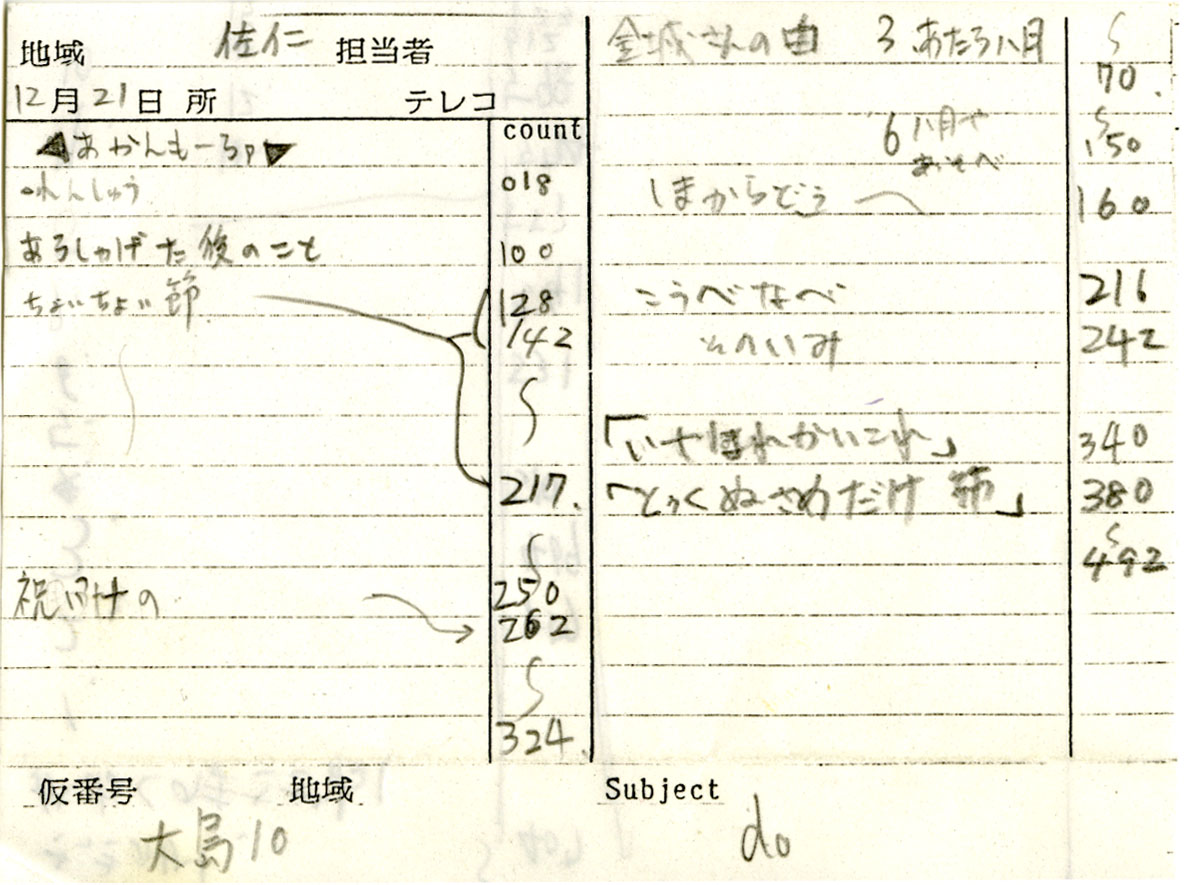 地域 佐仁 担当者
12月21日 所 テレコ
count
◀あかんもーろ▶
◦れんしゅう 018
あろしゃげた後のこと 100
ちょいちょい節 128
142
217.
祝い付の 250
262
324.
金城さんの由 3 あたろ八月
70.
6 八月や あそべ 150
しまからどう 160
こうべなべ 216
そのいみ 242
「いやほれかいこれ」 340
「とっくぬさめだけ節」 380
492
仮番号 地域
大島10
Subject
do